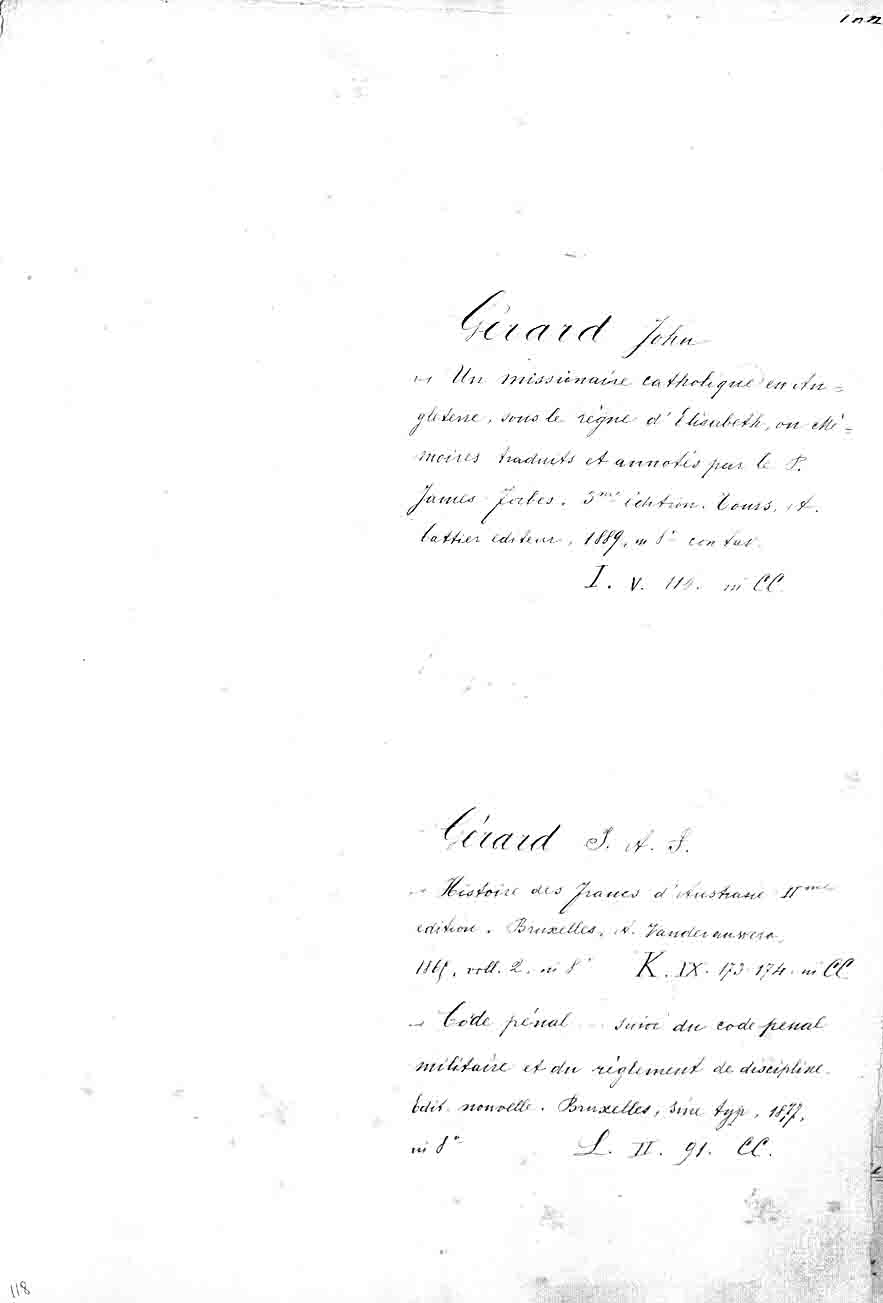 Gérard John
Un missionaire catholique en An=
gleterre, sous le règne d'Elisabeth, ou Mé=
moires traduits et annotés par le P.
James Forbes. 3me édition. Tours, A.
Cattier editeur, 1889, in 8° con tav.
I. V. in CC.
Gérard P. A. F.
Histoire des francs d'Austrasie IIme
edition. Bruxelles, A. Vanderauwera,
voll. 2. in 8° K. IX. 173-174. in CC
Code pénal ... suivi du code penal
militaire et du règlement de discipline.
Edit. nouvelle. Bruxelles, sine typ, 1877,
in 8° L. II. 91. CC.
118